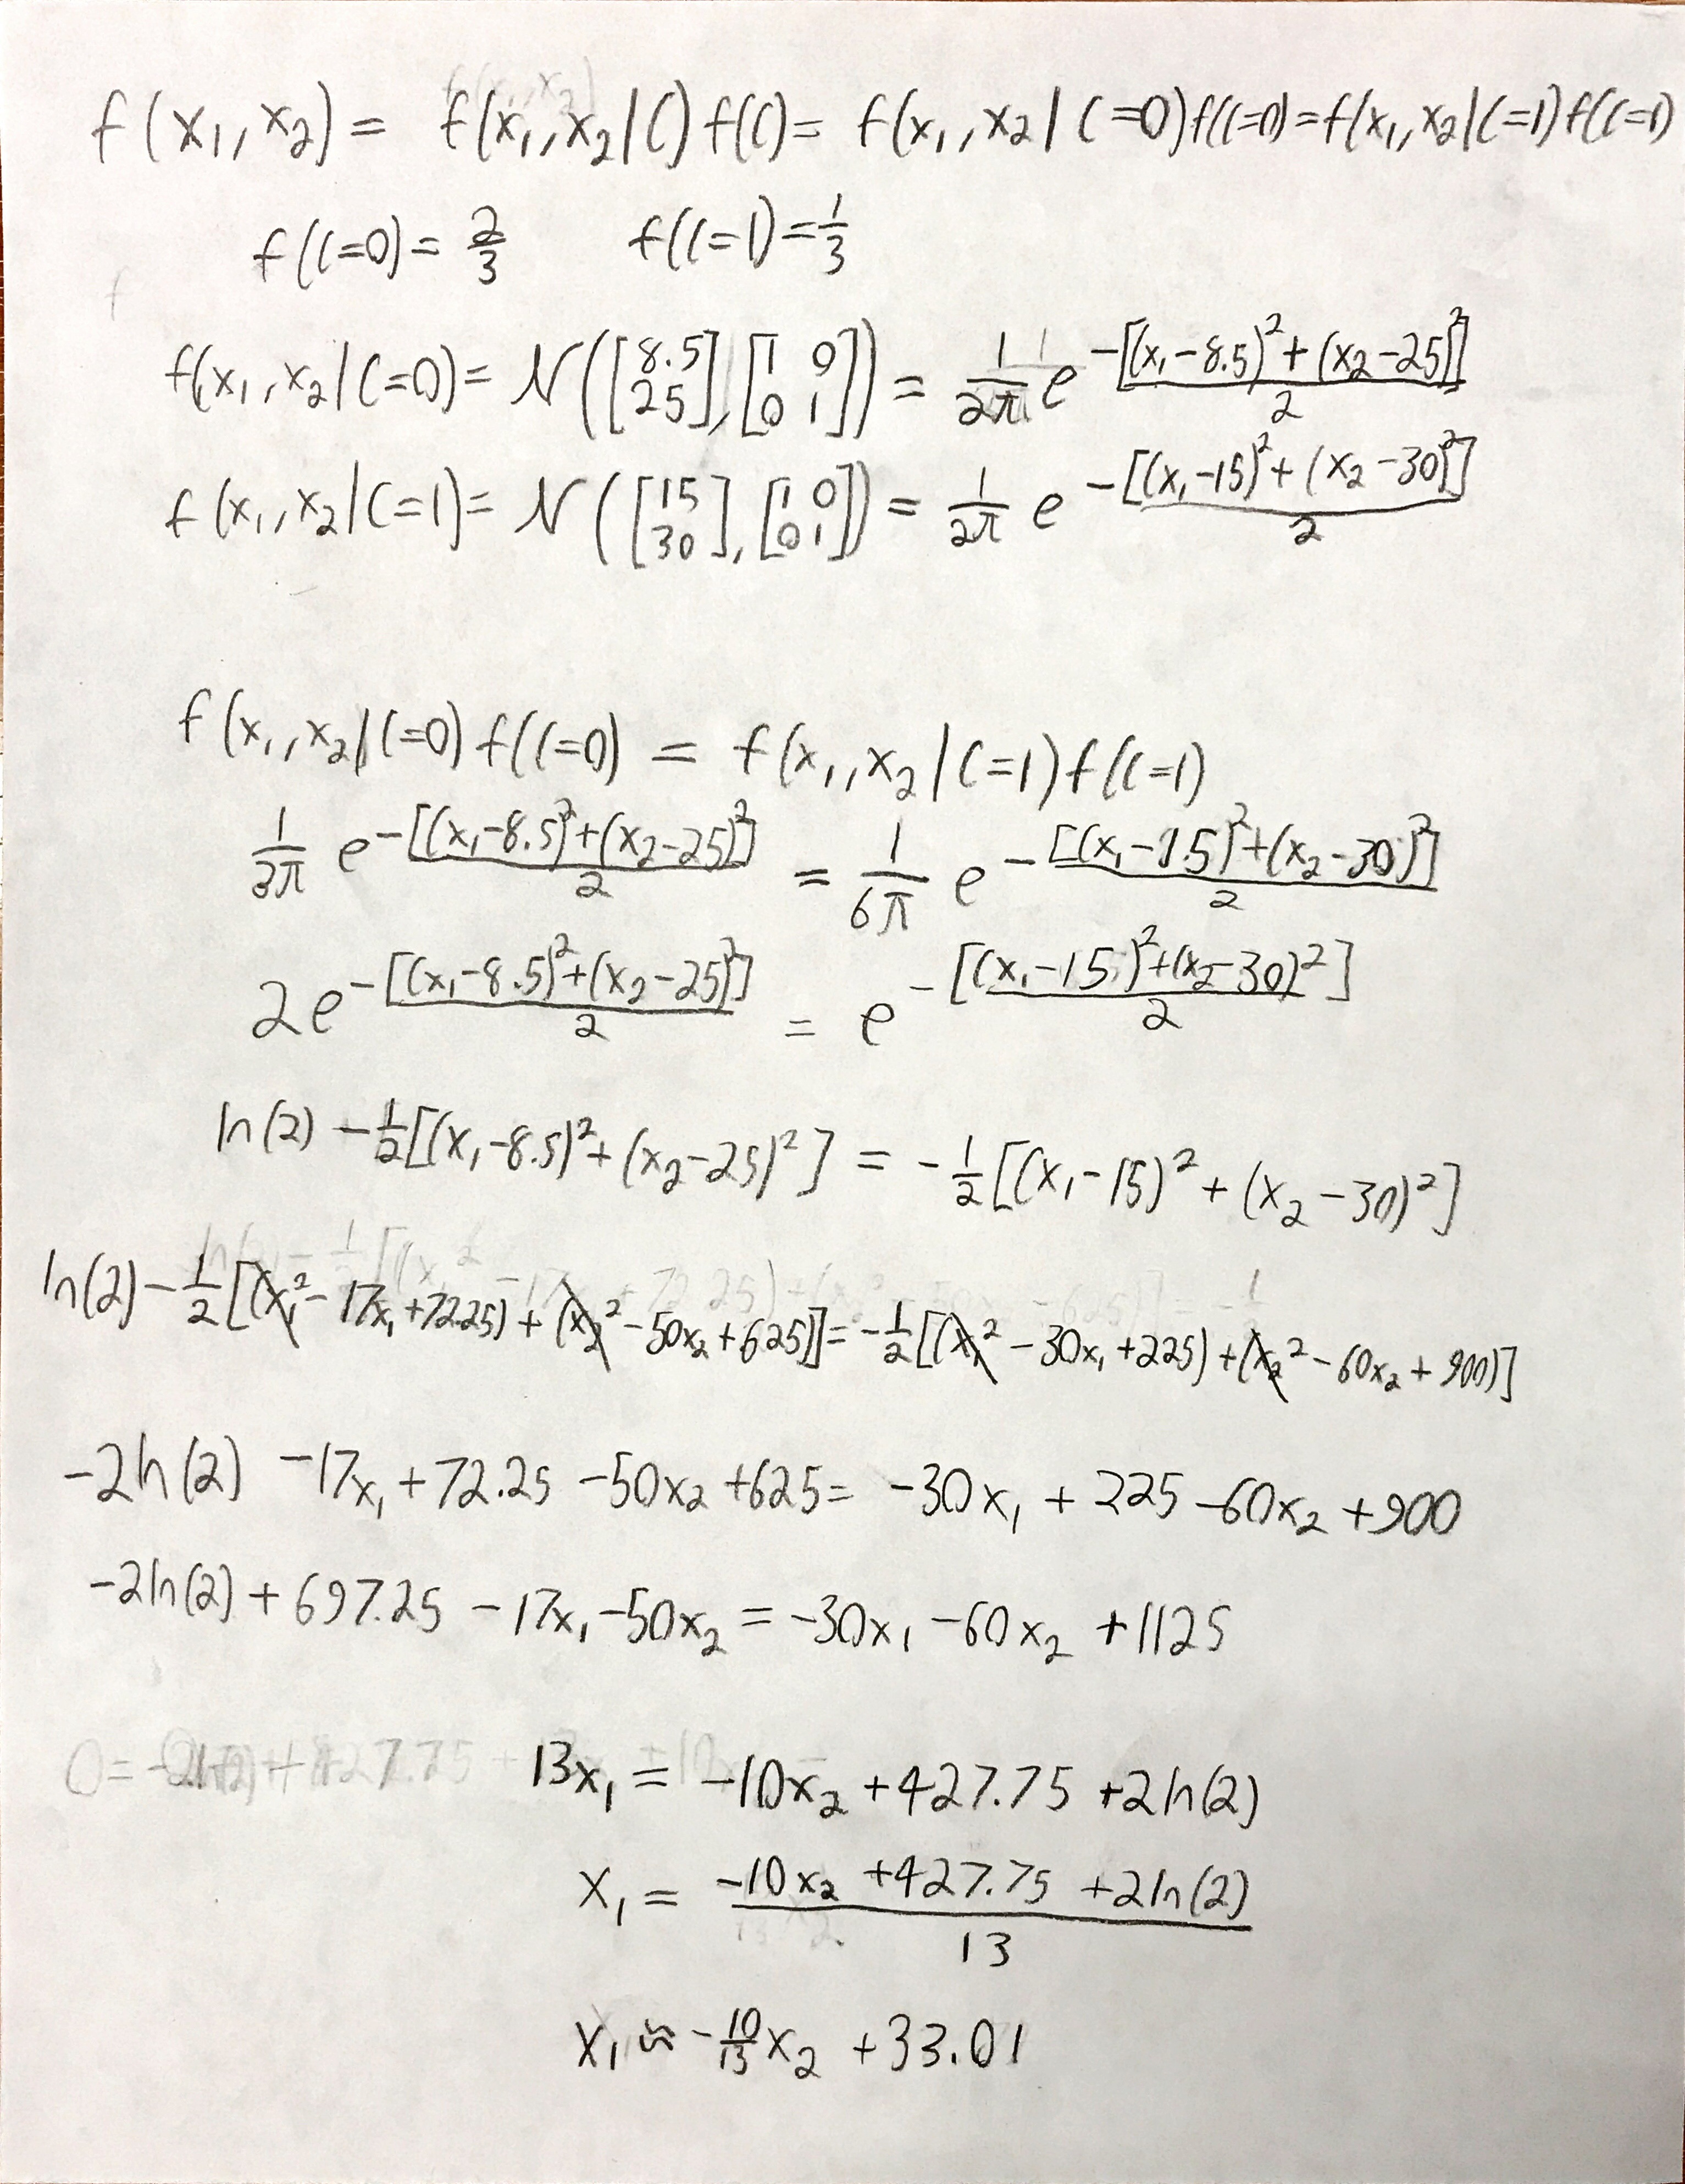 f(x₁, x₂) = f(x₁, x₂ | C) f(C) = f(x₁, x₂ | C=0) f(C=0) = f(x₁, x₂ | C=1) f(C=1)
f(C=0) = 2/3 f(C=1) = 1/3
f(x₁, x₂ | C=0) = N([8.5 25], [1 0 0 1]) = 1/2π e^-[(x₁-8.5)²+(x₂-25)²]/2
f(x₁, x₂ | C=1) = N([15 30], [1 0 0 1]) = 1/2π e^-[(x₁-15)²+(x₂-30)²]/2
f(x₁, x₂ | C=0) f(C=0) = f(x₁, x₂ | C=1) f(C=1)
1/3π e^-[(x₁-8.5)²+(x₂-25)²]/2 = 1/6π e^-[(x₁-15)²+(x₂-30)²]/2
2e^-[(x₁-8.5)²+(x₂-25)²]/2 = e^-[(x₁-15)²+(x₂-30)²]/2
ln(2) - 1/2[(x₁-8.5)²+(x₂-25)²] = -1/2[(x₁-15)²+(x₂-30)²]
ln(2) - 1/2[(x₁²-17x₁+72.25)+(x₂²-50x₂+625)] = -1/2[(x₁²-30x₁+225)+(x₂²-60x₂+900)]
-2ln(2) -17x₁+72.25 -50x₂+625 = -30x₁+225-60x₂+900
-2ln(2)+697.25 -17x₁-50x₂ = -30x₁-60x₂+1125
13x₁ = -10x₂+427.75+2ln(2)
x₁ = -10x₂+427.75+2ln(2) / 13
x₁ ≈ -10/13 x₂ +33.01